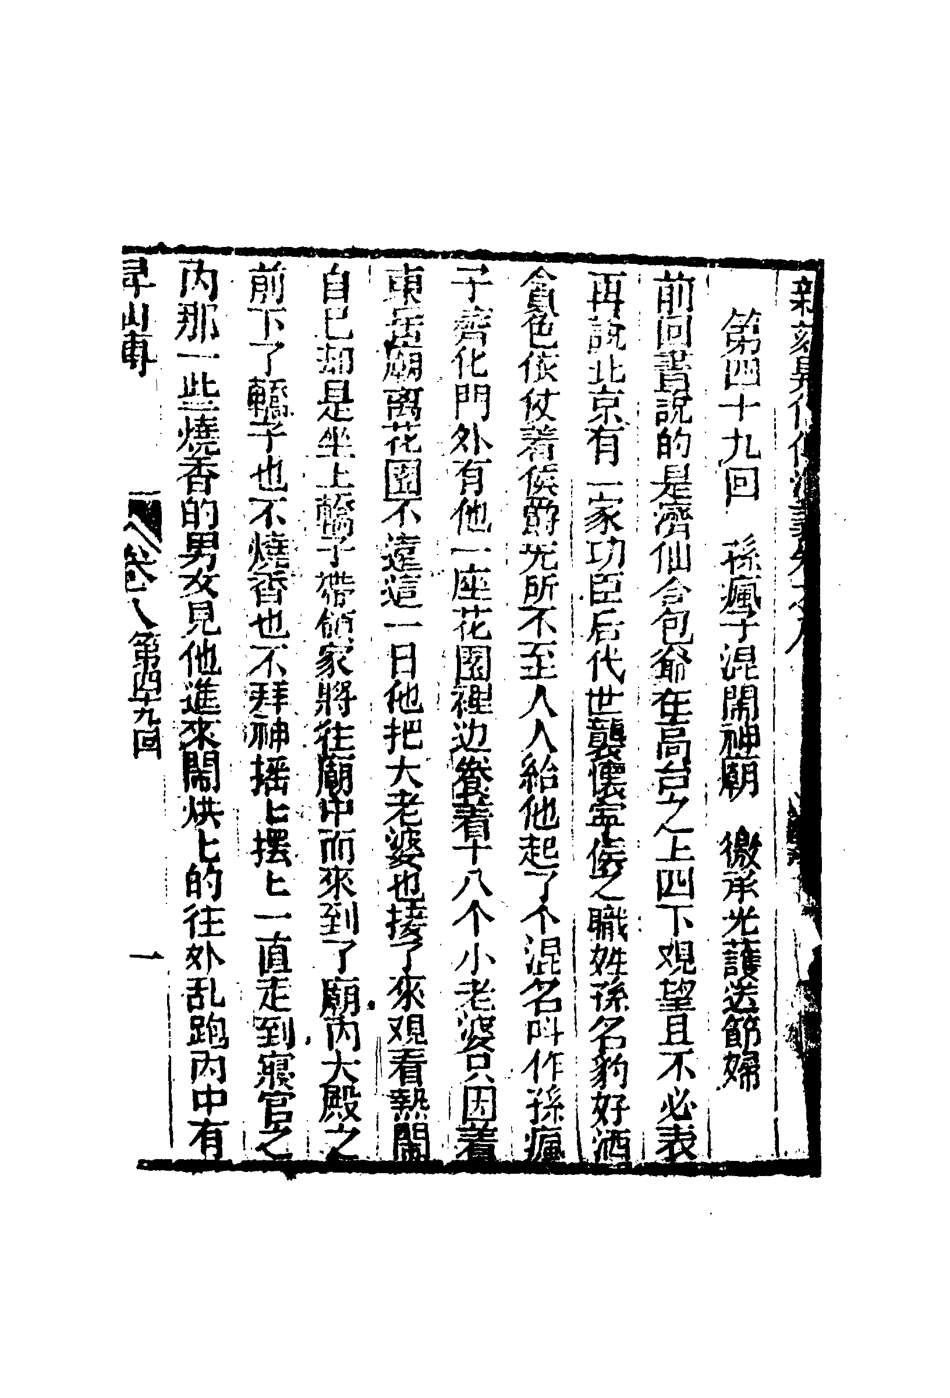 新刻異仙傳演義卷之八
第四十九回　孫瘋子混鬧神廟　徼承光護送節婦
前回書説的是濟仙合包爺在高台之上四下观望且不必表
再説北京有一家功臣后代世襲懷寧侯之職姓孫名豹好酒
貪色依仗着侯爵无所不至人人給他起了个混名叫作孫瘋
子齊化門外有他一座花園裡边養着十八个小老婆只因着
東岳廟离花園不遠這一日他把大老婆也接了來观看熱鬧
自己却是坐上轎子帶領家將往廟中而來到了廟内大殿之
前下了轎子也不燒香也不拜神揺匕摆匕一直走到寢宮之
内那一些燒香的男女見他進來鬧烘匕的往外乱跑内中有
卷八　第四十九回　一